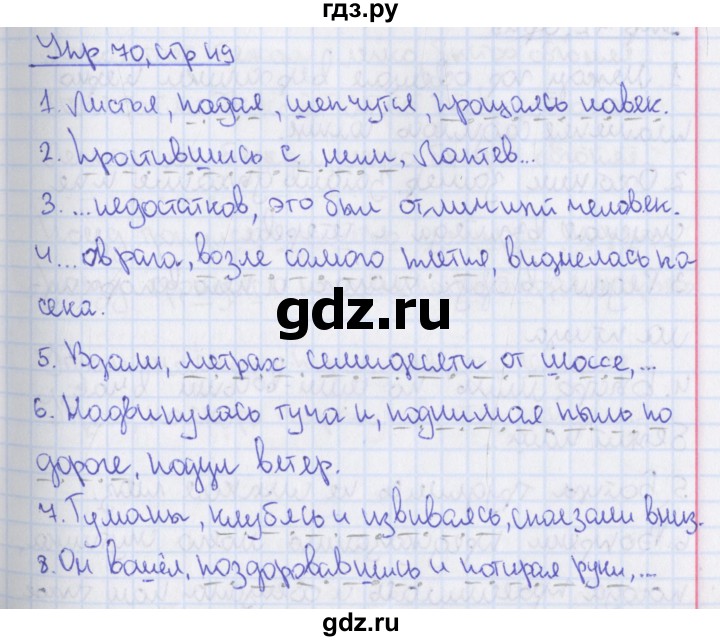 гдз.ру
Упр 70, стр 49
1. Листья, падая, шепчутся, прощаясь навек.
2. Простившись с ними, Лаптев...
3. ...недостатков, это был отличный человек.
4... оврага, возле самого плетня, виднелась па-
сека.
gdz.ru
5. Вдали, метрах семидесяти от шоссе,...
6. Надвинулась туча и, поднимая пыль по
дороге, подул ветер.
7. Туманы, клубясь и извиваясь, сползали вниз.
8. Он вошёл, поздоровавшись и потирая руки,...
gdz.ru